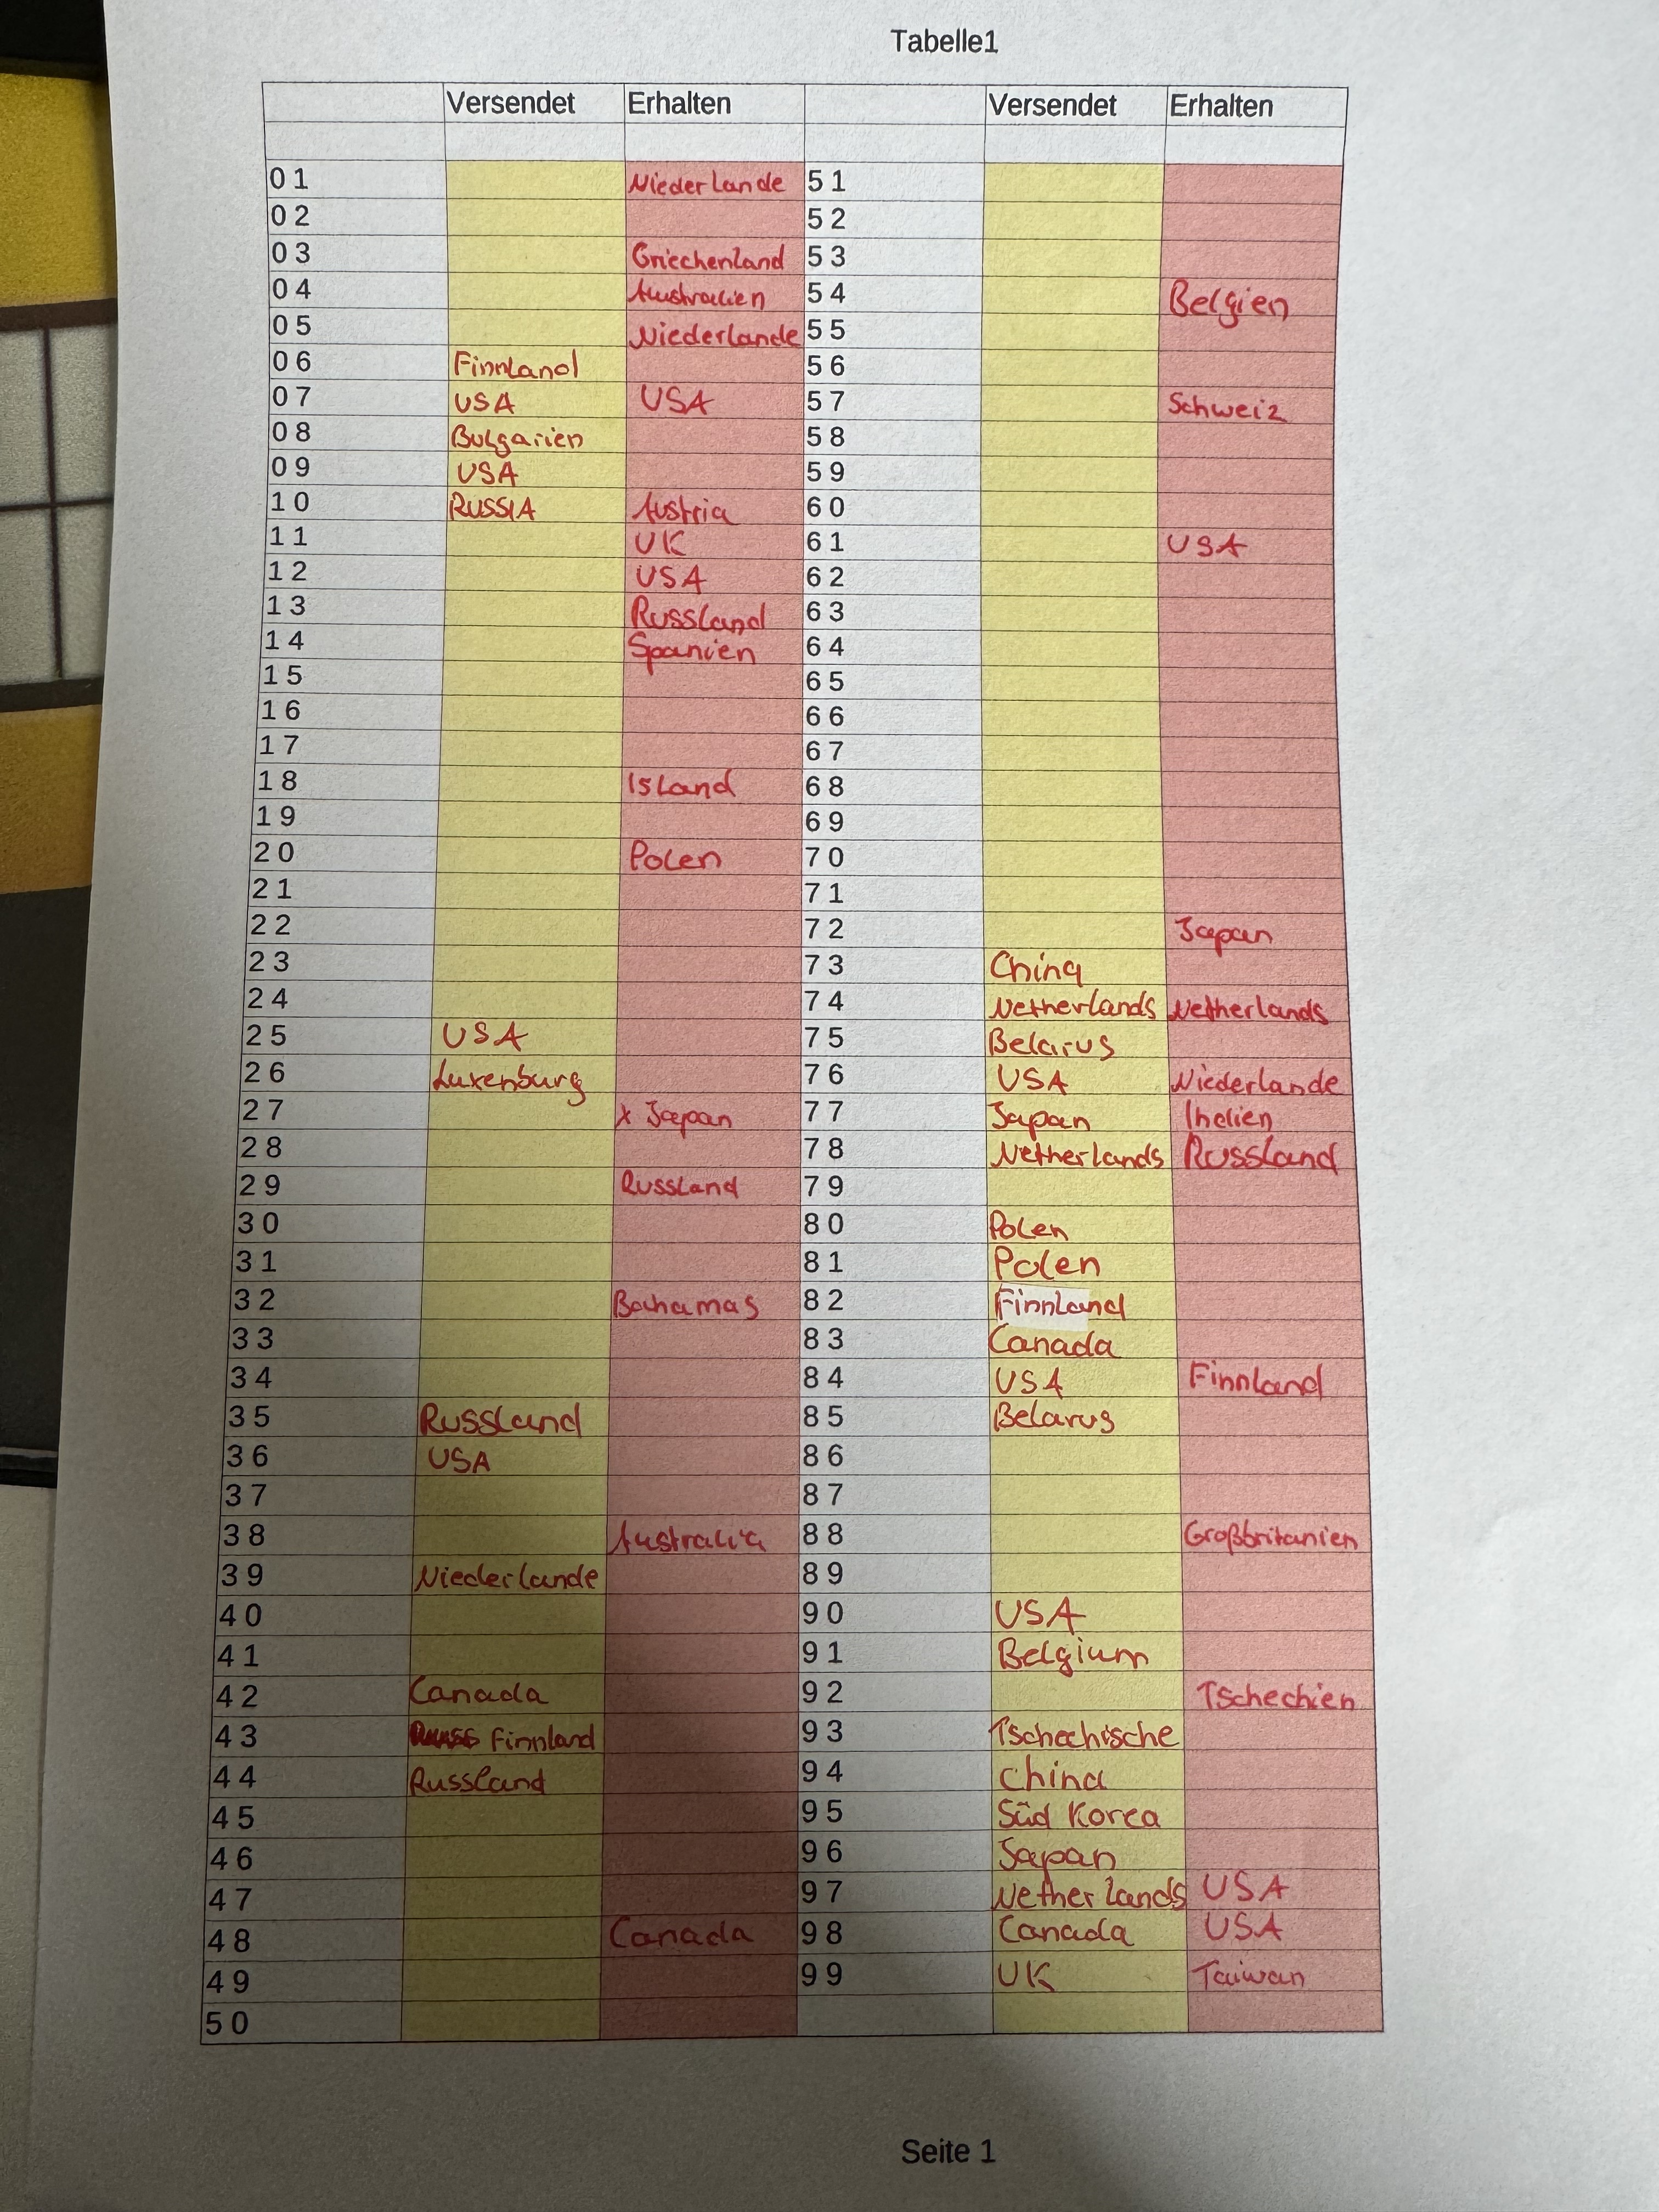 Tabelle1
Versendet Erhalten Versendet Erhalten
01 Niederlande 51
02 52
03 Griechenland 53
04 Australien 54 Belgien
05 Niederlande 55
06 Finnland 56
07 USA USA 57 Schweiz
08 Bulgarien 58
09 USA 59
10 RUSSIA Austria 60
11 UK 61 USA
12 USA 62
13 Russland 63
14 Spanien 64
15 65
16 66
17 67
18 Island 68
19 69
20 Polen 70
21 71
22 72 Japan
23 73 China
24 74 Netherlands Netherlands
25 USA 75 Belarus
26 Luxenburg 76 USA Niederlande
27 x Japan 77 Japan Indien
28 78 Netherlands Russland
29 Russland 79
30 80 Polen
31 81 Polen
32 Bahamas 82 Finnland
33 83 Canada
34 84 USA Finnland
35 Russland 85 Belarus
36 USA 86
37 87
38 Australia 88 Großbritanien
39 Niederlande 89
40 90 USA
41 91 Belgium
42 Canada 92 Tschechien
43 Finnland 93 Tschechische
44 Russland 94 China
45 95 Süd Korea
46 96 Japan
47 97 Netherlands USA
48 Canada 98 Canada USA
49 99 UK Taiwan
50
Seite 1